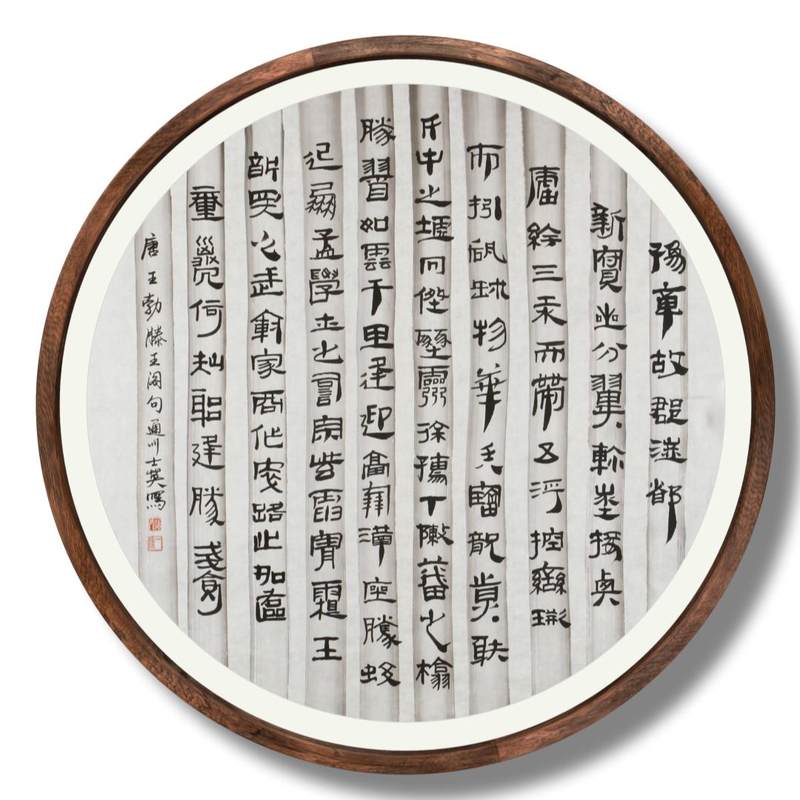 豫章故郡洪都
新府星分翼軫地接衡
廬襟三江而帶五湖控蠻荊
而引甌越物華天寶龍光射
牛斗之墟人傑地靈徐孺下陳蕃之榻
勝友如雲千里逢迎高朋滿座騰蛟
起鳳孟學士之詞宗紫電青霜王
將軍之武庫家君作宰路出名區
童子何知躬逢勝餞
唐王勃滕王閣句通川士英寫